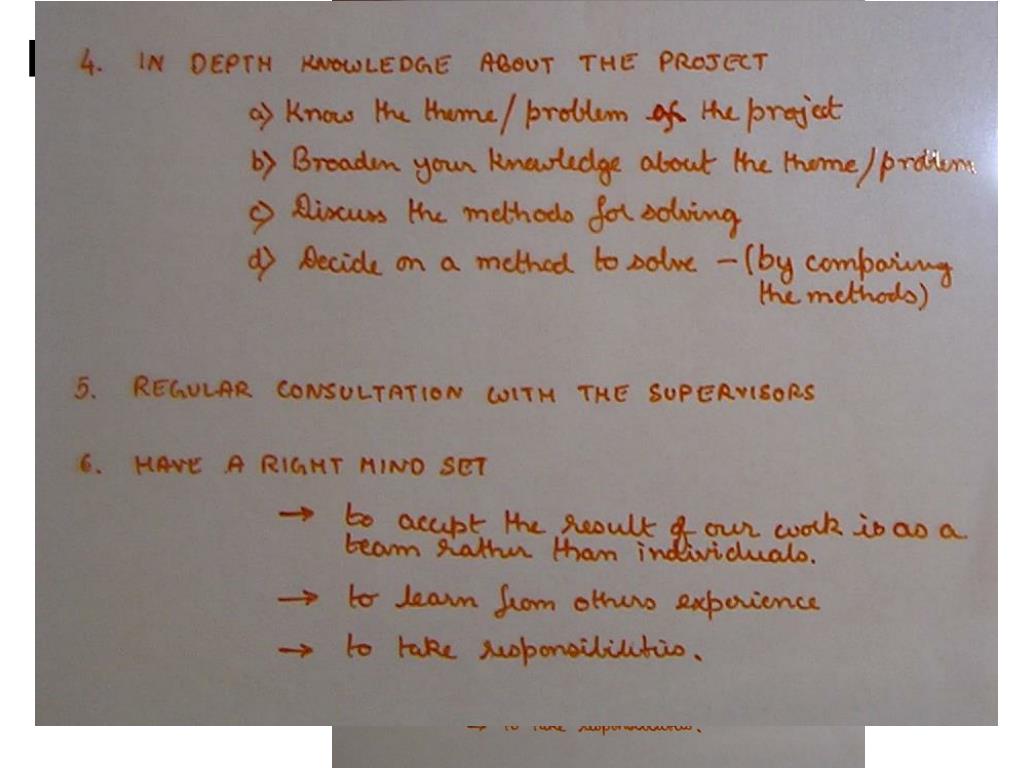 4. IN DEPTH KNOWLEDGE ABOUT THE PROJECT
a) Know the theme/problem of the project
b) Broaden your knowledge about the theme/problem
c) Discuss the methods for solving
d) Decide on a method to solve – (by comparing
the methods)
5. REGULAR CONSULTATION WITH THE SUPERVISORS
6. HAVE A RIGHT MIND SET
→ to accept the result of our work is as a
team rather than individuals.
→ to learn from others experience
→ to take responsibilities.
→ to take responsibilities.